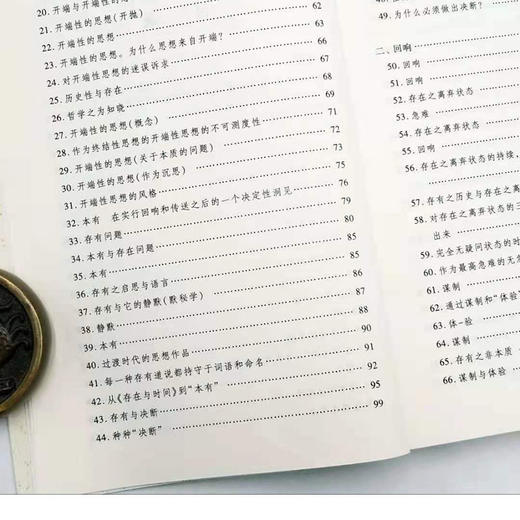 20. 开端与开端性的思
21. 开端性的思想(开抛)
22. 开端性的思想
23. 开端性的思想。为什么思想来自开端? 62
24. 对开端性思想的迷误诉求 63
25. 历史性与存在 66
26. 哲学之为知晓 67
27. 开端性的思想(概念) 68
28. 作为终结性思想的开端性思想的不可测度性 71
29. 开端性的思想(关于本质的问题) 72
30. 开端性的思想(作为沉思) 73
31. 开端性思想的风格 75
32. 本有 在实行回响和传送之后的一个决定性洞见 76
33. 存有问题 79
34. 本有与存在问题 80
35. 本有 85
36. 存有之启思与语言 85
37. 存有与它的静默(默秘学) 86
38. 静默 87
39. 本有 88
40. 过渡时代的思想作品 90
41. 每一种存有道说都持守于词语和命名 91
42. 从《存在与时间》到“本有” 92
43. 存有与决断 95
44. 种种“决断” 99
49. 为什么必须做出决断?
二、回响
50. 回响
51. 回响
52. 存在之离弃状态
53. 急难
54. 存在之离弃状态
55. 回响
56. 存在之离弃状态的持续,
57. 存有之历史与存在之离
58. 对存在之离弃状态的三
出来
59. 完全无疑问状态的时
60. 作为最高急难的无急
61. 谋制
62. 通过谋制和“体验
63. 体-验
64. 谋制
65. 存有之非本质
66. 谋制与体验